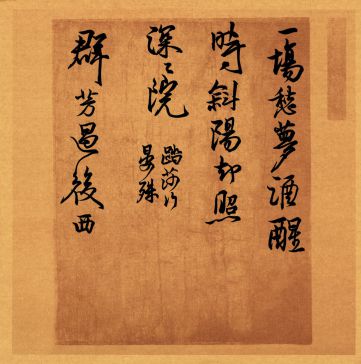 一塲愁夢酒醒
時斜陽却照
深〻院
踏莎行
晏殊
群芳過後西